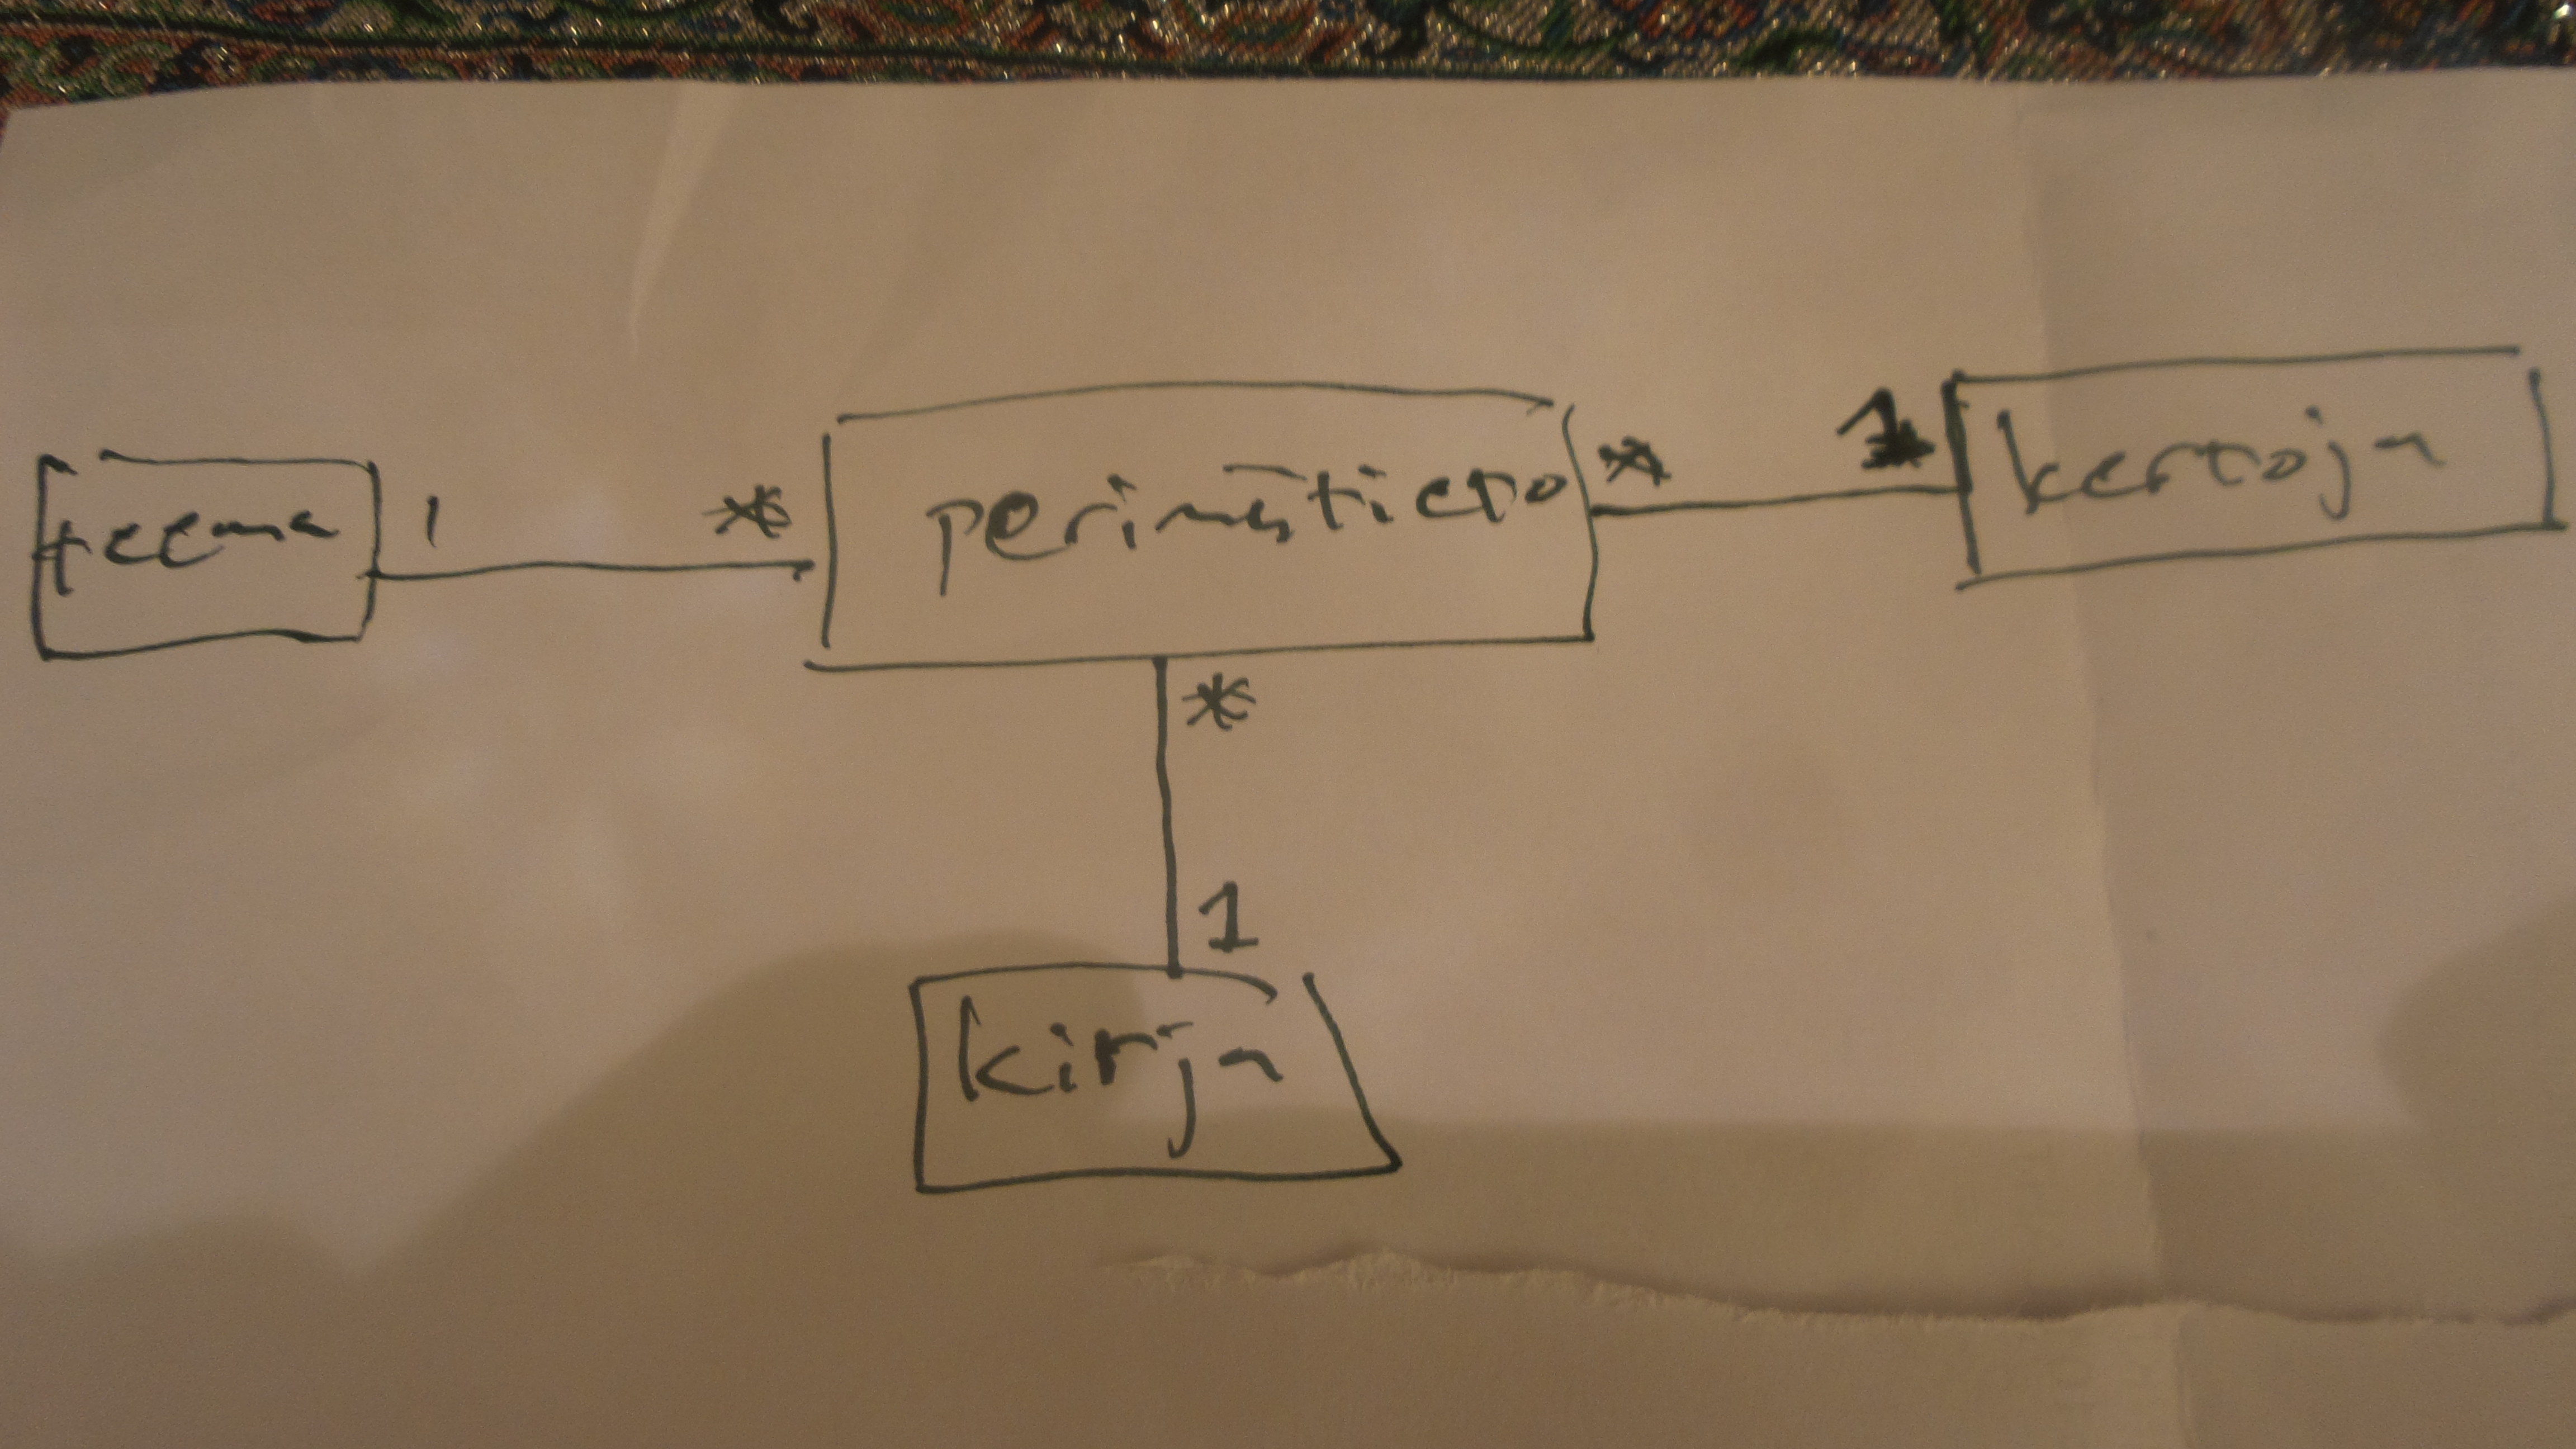 teema 1 * perimätieto * 1 kertoja
*
1
kirja